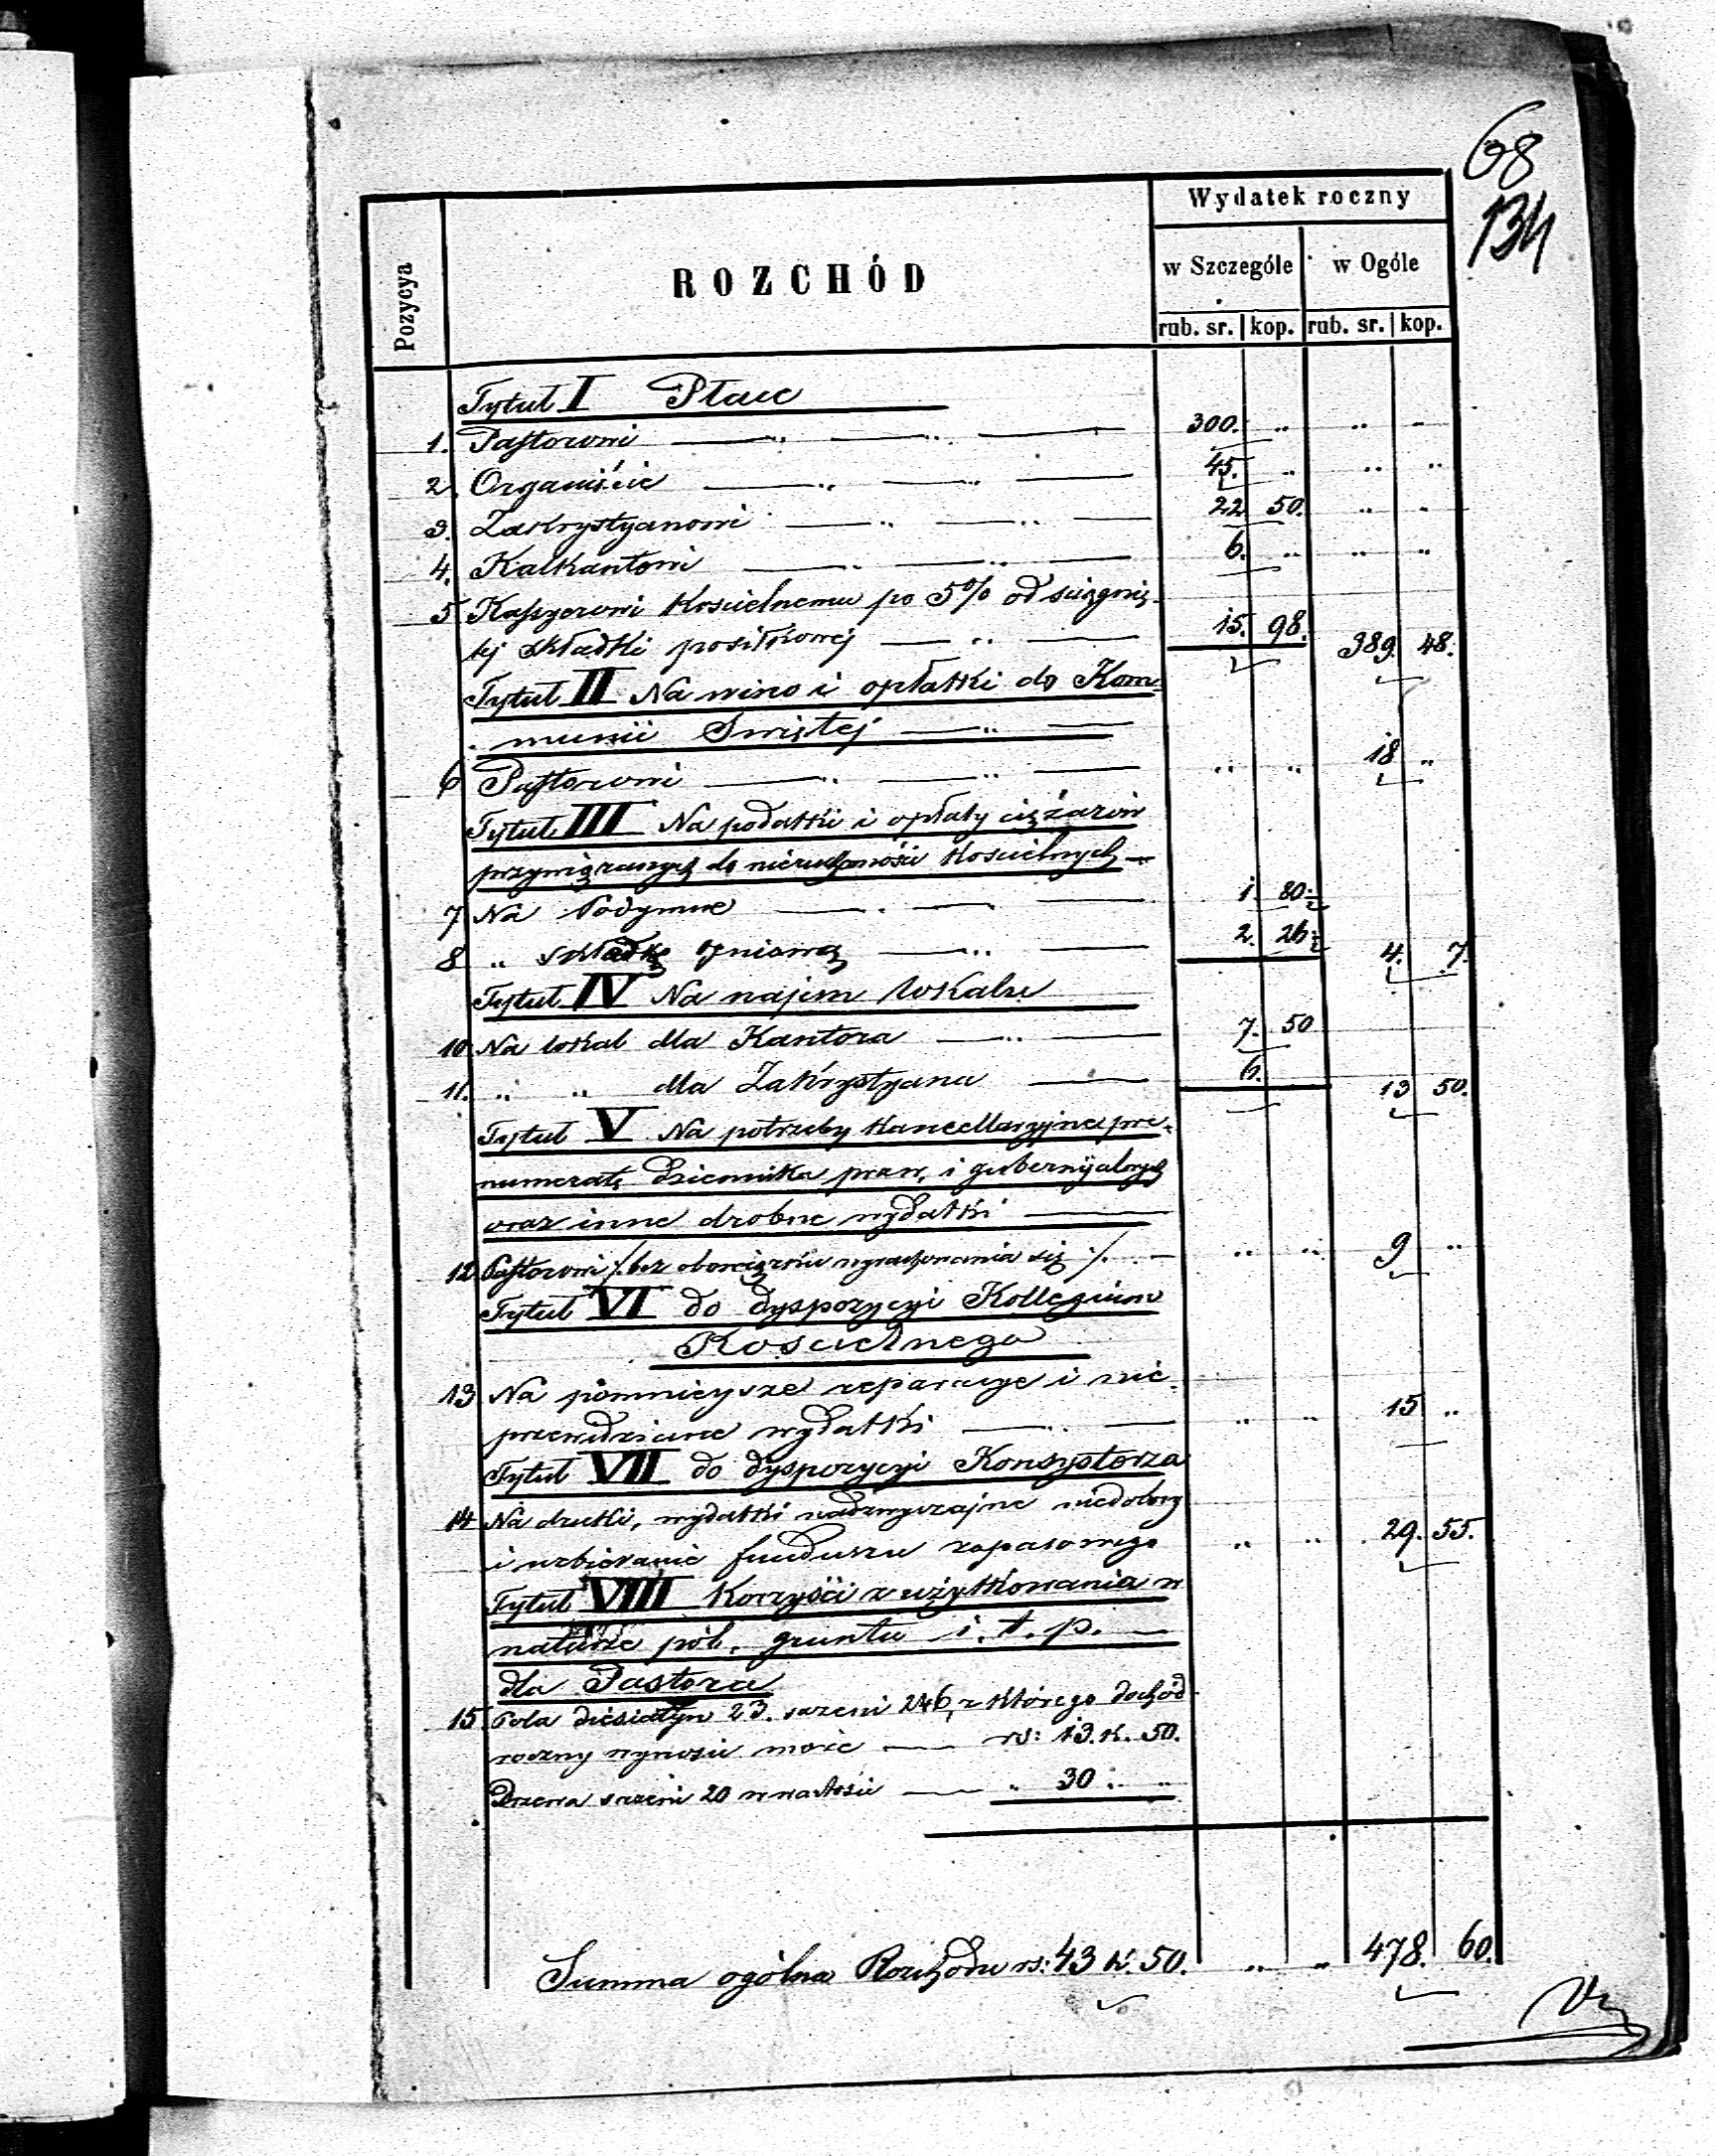 68
134
Wydatek roczny
Pozycya
ROZCHÓD
w Szczególe
w Ogóle
rub. sr. kop. rub. sr. kop.
Tytuł I Płace
1. Pastorowi 300. „ „ „
2. Organiście 45. „ „ „
3. Zakrystyanowi 22 50. „ „
4. Kalkantowi 6. „ „ „
5 Kassyerowi Kościelnemu po 5% od ściągnię-
tej składki posiłkowej 15. 98. 389. 48.
Tytuł II Na wino i opłatki do Kom-
munii Świętej
6 Pastorowi „ „ 18 „
Tytuł III Na podatki i opłaty ciężarów
przywiązanych do nieruchomości Kościelnych
7 Na Podymne 1. 80½
8 „ składkę ogniową 2. 26½ 4. 7.
Tytuł IV Na najem lokalu
10 Na lokal dla Kantora 7. 50
11. „ „ dla Zakrystyana 6. 13 50.
Tytuł V Na potrzeby Kancellaryjne pre-
numeratę Dziennika praw, i gubernijalnych
oraz inne drobne wydatki
12 Pastorowi /. bez obowiązku wyrachowania się ./. „ „ 9 „
Tytuł VI do dyspozycyi Kollegium
Kościelnego
13 Na pomniejsze reparacye i nie-
przewidziane wydatki „ „ 15 „
Tytuł VII do dyspozycyi Konsystorza
14 Na druki, wydatki nadzwyczajne niedobory
i uzbieranie funduszu zapasowego „ „ 29. 55.
Tytuł VIII Korzyści z użytkowania w
naturze pól, gruntu i. t. p.
dla Pastora
15 Pola diesiatyn 23. sążeni 246, z którego dochód
roczny wynosić może rs: 13. k. 50.
Drzewa sążeni 20 w wartości „ 30 „ „
Summa ogólna Rozchodu rs: 43 k. 50. „ „ 478. 60.